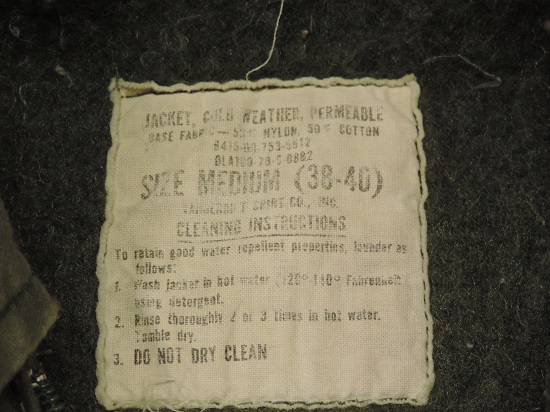 JACKET, COLD WEATHER, PERMEABLE
BASE FABRIC — 50% NYLON, 50% COTTON
8415-00-753-5612
DLA100-78-C-0882
SIZE MEDIUM (38-40)
SHIRT CO., INC.
CLEANING INSTRUCTIONS
To retain good water repellent properties, launder as
follows:
1. Wash jacket in hot water (120° 140° Fahrenheit
using detergent.
2. Rinse thoroughly 2 or 3 times in hot water.
Tumble dry.
3. DO NOT DRY CLEAN